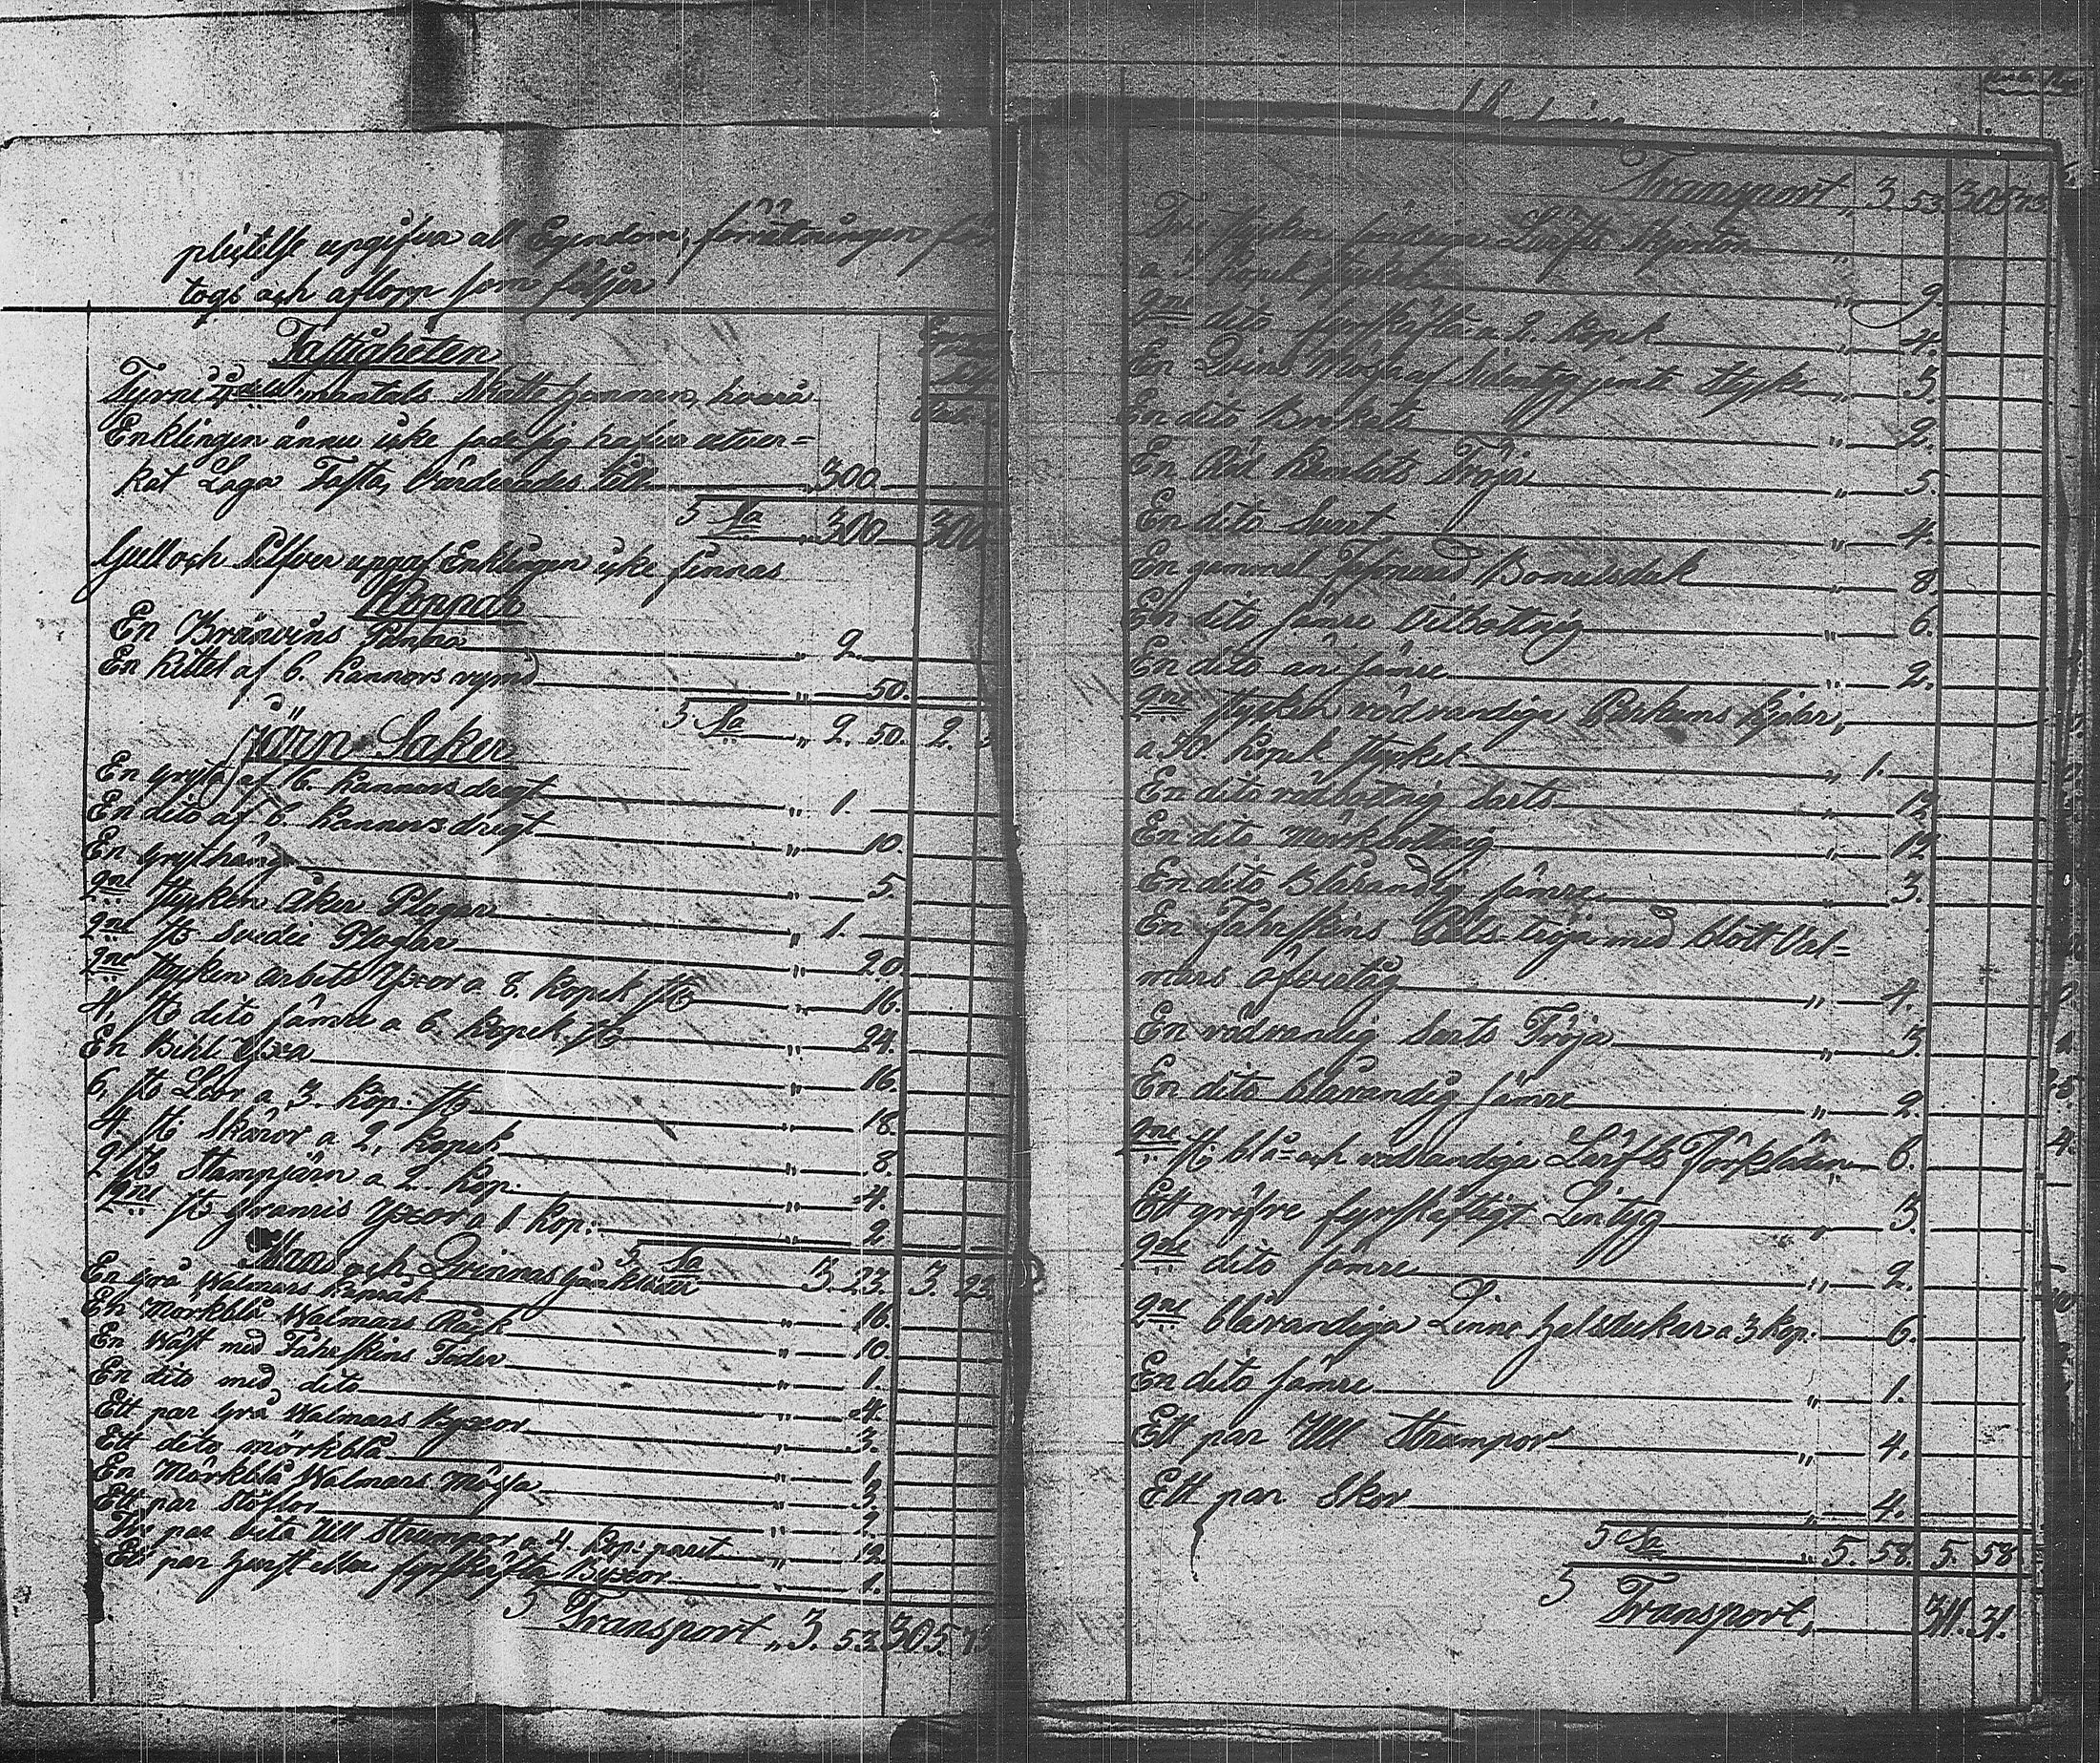 plixtelse upgifva all Egendom, förrättningen för
togs och aflopp som följer
Fastigheten
Enklingen ännu icke sade sig hafva utver=
kat Laga Fasta, Värderades till 300
S Sa 300 300
Gull och Silfver uppgaf Enklingen icke finnas
Koppar
En Bränvins Panna " 2.
En Kittel af 6. kannors rymd " 50.
S Sa " 2. 50. 2. 5
Järn Saker
En gryta af 6. kannors drägt " 1.
En dito af 6. kannors drägt " 10
En grythäng " 5.
2ne stycken åker Plogar " 1.
2ne st svedie Plogar " 20.
2ne stycken arbets Yxor a 8. kopek st " 16.
4, st dito sämre a 6. kopek st " 24.
En Bihl Yxa " 16.
6, st Lior a 3. kop: st " 18.
4. st Skäror a 2, kopek " 8.
2 st Stampjärn a 2. kop. " 4.
2ne st granris Yxor a 1 kop: " 2
S Sa 3. 23. 3. 23
Mans och Qvinnas gångkläder
En grå Walmars kapråk " 16.
En Mörkblå Walmars Råck " 10.
En Wäst med Fåhrskins Foder " 1.
En dito med dito " 4.
Ett par grå Walmars Byxor " 3.
Ett dito mörkblå " 1.
En Mörkblå Walmars Mössa
Ett par Stöflor
Tre par hvita Ull Strumpor a 4. kop: paret " 12
Ett par fyrskäfta Byxor " 1.
S Transport, " 3. 53 305. 73
Transport, " 3. 53 305 73
Tre stycken Lärfts Skjortor
a 3 kopek stycket " 9
2ne dito fyrskäfta a 2. kopek " 4.
En Qvins Mössa af Sidentyg jemte Stycke " 5.
En dito Brokots " 2.
En Röd kamlots Tröja " 5.
En dito Svart " 4.
En gammal Bomulsduk " 8
En dito sämre hvitbottnig " 6.
En dito än sämre " 2.
2ne stycken rödrandiga Parkums kjolar,
a 50. kopek stycket " 1.
En dito rödbottnig Sarts " 12
En dito mörkbottnig " 12
En dito Blårandig sämre " 3.
En Fåhrskins Päls tröja med blott Val=
mars öfvertåg " 4.
En rödrandig Sarts Tröja " 3.
En dito blårandig sämre " 2.
2ne st: blå= och rödrandiga Lärfts Förkläden 6.
Ett gröfre fyrskäftigt Lintyg " 3.
2ne dito sämre " 2.
2ne blårandiga Linne halsdukar a 3 kop: 6.
En dito sämre " 1.
Ett par Ull Strumpor " 4.
Ett par Skor " 4.
S Sa " 5. 58. 5. 58
S Transport, 311. 31.